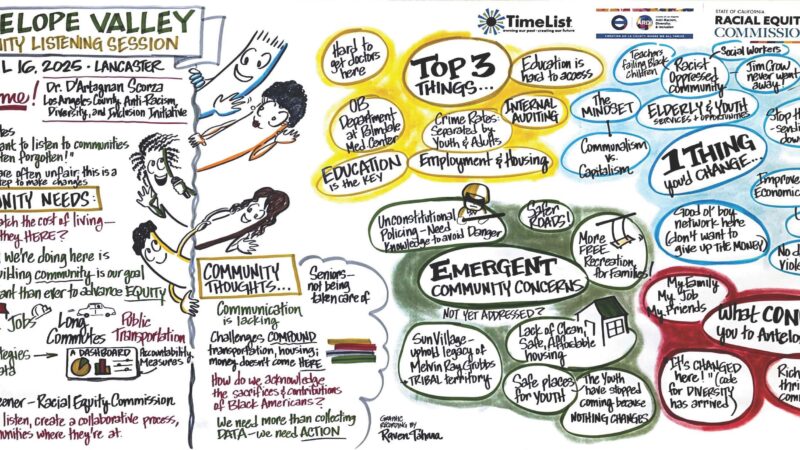 ELOPE VALLEY
ITY LISTENING SESSION
L 16, 2025 - LANCASTER
me! Dr. D'Artagnan Scorza
Los Angeles County, Anti-Racism,
Diversity, and Inclusion Initiative
ant to listen to communities
ften forgotten!"
are often unfair, this is a
step to make changes
NITY NEEDS:
atch the cost of living—
they HERE?
we're doing here is
uilding community is our goal
tant than ever to advance EQUITY
JOBS
Long Commutes
Public Transportation
A DASHBOARD
Accountability Measures
ategies
ener - Racial Equity Commission
listen, create a collaborative process,
munities where they're at.
COMMUNITY THOUGHTS...
Communication
is lacking
Challenges COMPOUND
transportation, housing;
money doesn't come HERE
How do we acknowledge
the sacrifices & contributions
of Black Americans?
We need more than collecting
DATA—we need ACTION
Seniors—
not being
taken care of
GRAPHIC
RECORDING BY
Raven Tahara
TimeList
owning our past · creating our future
STATE OF CALIFORNIA
RACIAL EQUIT
COMMISSION
ARDI
TOP 3
THINGS...
Hard to
get doctors
here
Education is
hard to access
OB
Department
at Palmdale
Med. Center
Crime Rates:
Separated by
Youth & Adults
INTERNAL
AUDITING
EDUCATION
is the KEY
Employment & Housing
EMERGENT
COMMUNITY CONCERNS
NOT YET ADDRESSED?
Unconstitutional
Policing—Need
Knowledge to avoid Danger
Safer
ROADS!
More
FREE
Recreation,
for Families!
Sun Village—
uphold legacy of
Melvin Ray Grubbs
+ TRIBAL territory
Lack of Clean,
Safe, Affordable
housing
Safe places
for YOUTH
The Youth
have stopped
coming because
NOTHING CHANGES
1 THING
you'd CHANGE...
Teachers
Failing Black
Children
Racist
Oppressed
community
Social Workers
Jim Crow
never went
away!
The
MINDSET
Communalism
vs.
Capitalism
ELDERLY & YOUTH
SERVICES + OPPORTUNITIES
Stop th
send
dow
Improve
Economic
Good ol' boy
network here
(don't want to
give up THE MONEY)
No d
Viole
What CON
you to Antelo
My Family
My Job
My Friends
It's CHANGED
here! " (code
for DIVERSITY
has arrived)
Rich
thri
comm